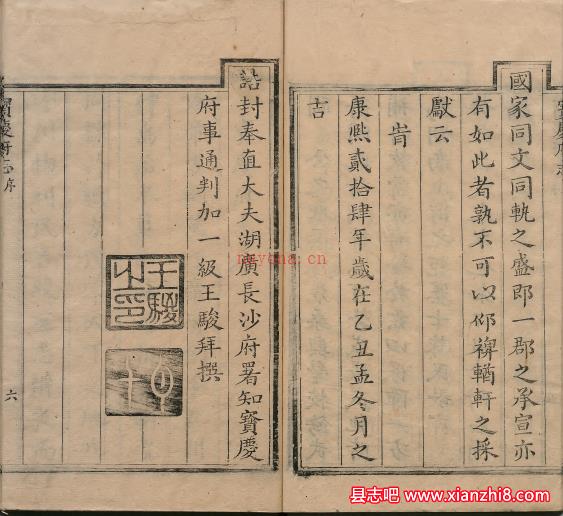 國家同文同軌之盛即一郡之承宣亦
有如此者孰不可以仰裨輶軒之採
獻云
旹
康熙貳拾肆年歲在乙丑孟冬月之
吉
誥封奉直大夫湖廣長沙府署知寶慶
府事通判加一級王駿拜撰
王駿
之印
寶慶府志
序
六
nayona.cn
县志吧
www.xianzhi8.com